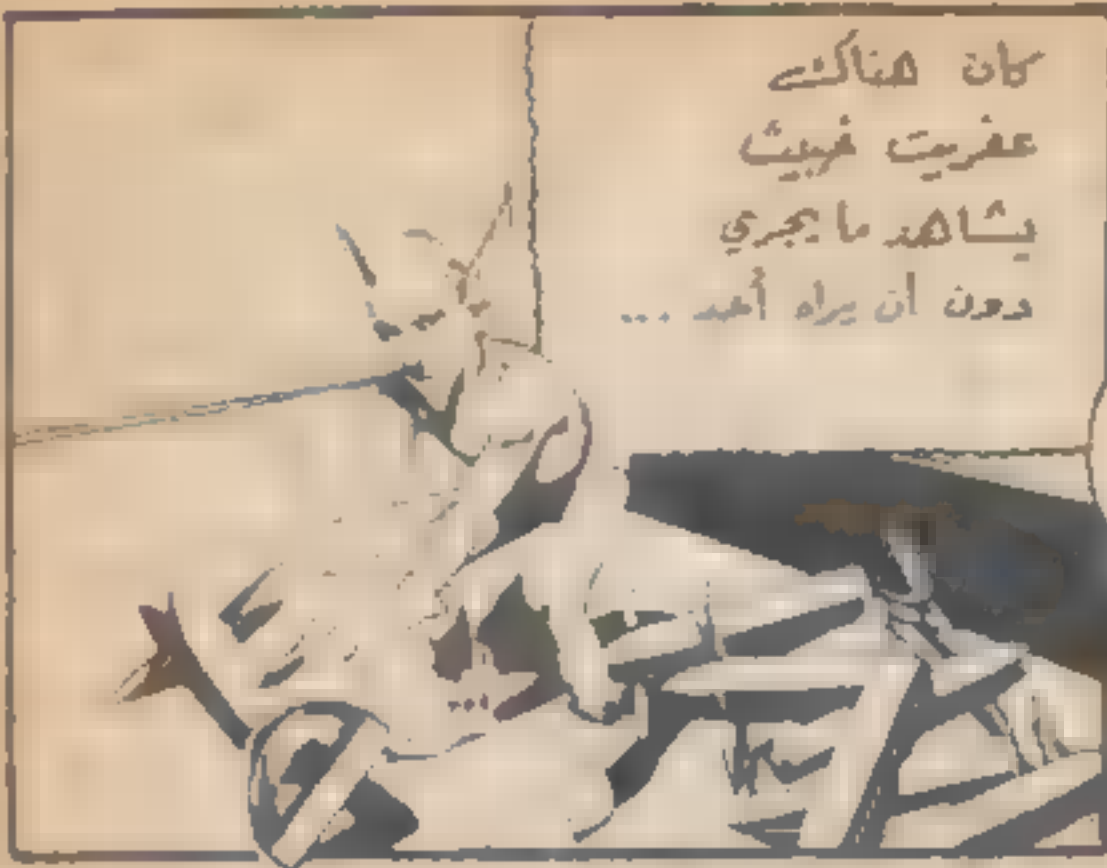 كان هناك
عفريت خبيث
يشاهد ما يجري
دون أن يراه أحد ...